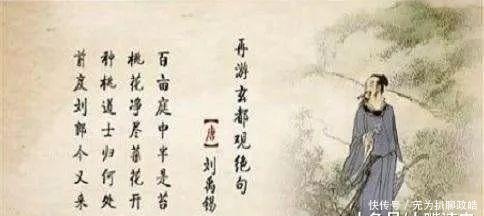 再游玄都观绝句
【唐】刘禹锡
百亩庭中半是苔
桃花净尽菜花开
种桃道士归何处
前度刘郎今又来
快传号/完为搞聊政皓